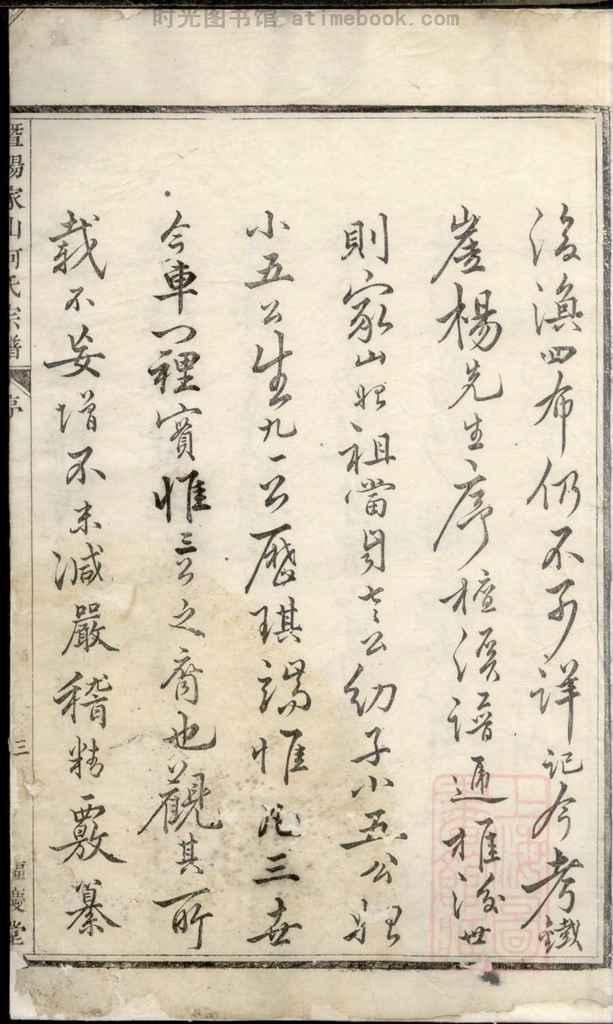 时光图书馆 atimebook.com
後滇四布仍不可詳記今考鐵
崖楊先生序檀溪譜通推後世
則家山始祖當自七公幼子小五公始
小五公生九一公歷琪端惟三世
今車八裡實惟三公之裔也觀其所
載不妄增不末減嚴稽精覈纂
暨陽家山何氏宗譜
序
三
福慶堂